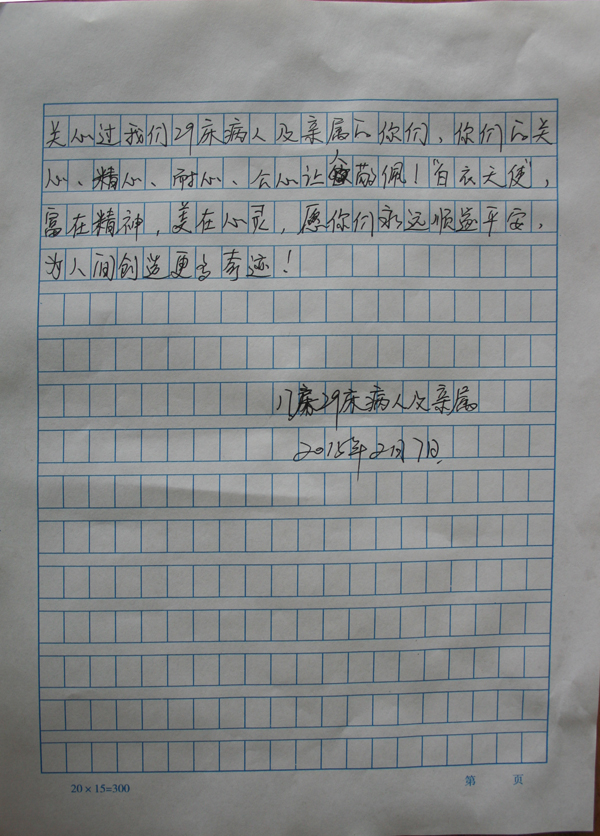 关心过我们29床病人及亲属的你们，你们的关
心、精心、耐心、公心让人敬佩！"白衣天使"，
富在精神，美在心灵，愿你们永远顺遂平安，
为人间创造更多奇迹！
29床病人及亲属
2015年2月7日
20×15=300
第 页